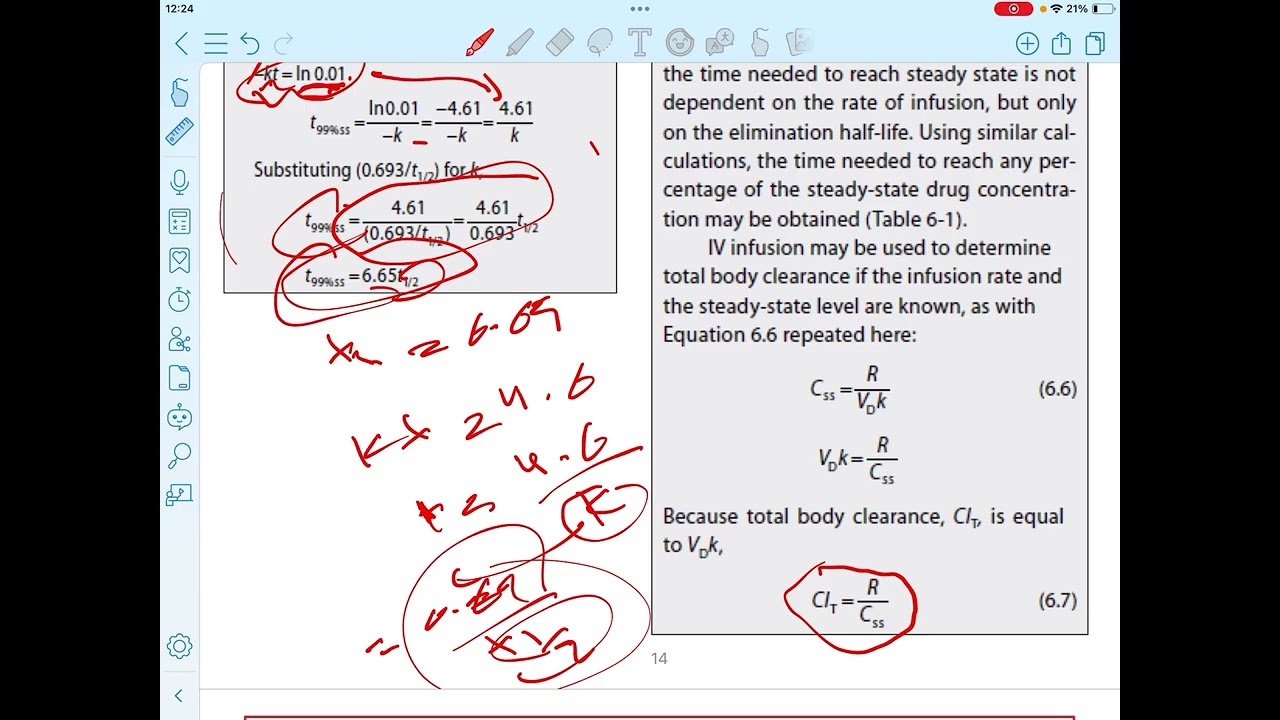 12:24
21%
–kt = ln 0.01.
t99%ss = ln0.01/–k = –4.61/–k = 4.61/k
Substituting (0.693/t1/2) for k,
t99%ss = 4.61/(0.693/t1/2) = 4.61/0.693 t1/2
t99%ss = 6.65t1/2
4.6
4.6
K
the time needed to reach steady state is not
dependent on the rate of infusion, but only
on the elimination half-life. Using similar cal-
culations, the time needed to reach any per-
centage of the steady-state drug concentra-
tion may be obtained (Table 6-1).
IV infusion may be used to determine
total body clearance if the infusion rate and
the steady-state level are known, as with
Equation 6.6 repeated here:
Css = R/VDk (6.6)
VDk = R/Css
Because total body clearance, ClT, is equal
to VDk,
ClT = R/Css (6.7)
14